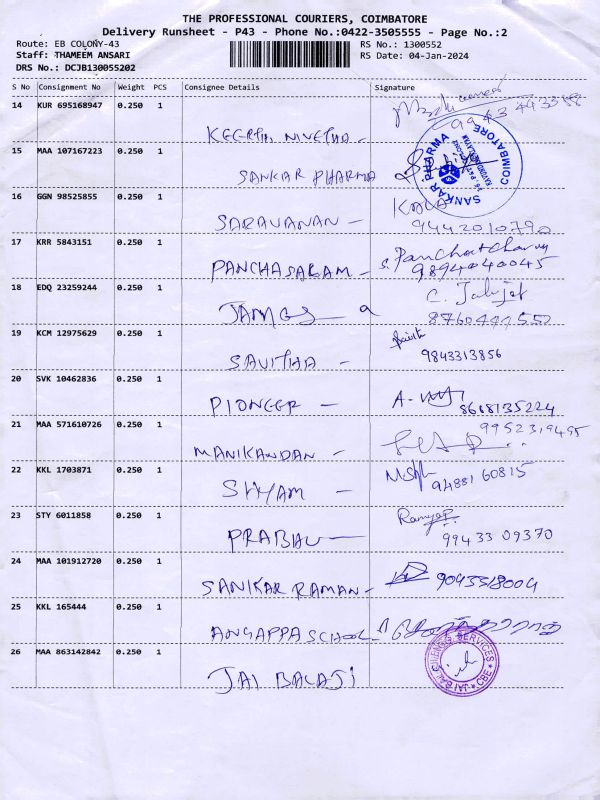 THE PROFESSIONAL COURIERS, COIMBATORE
Delivery Runsheet - P43 - Phone No.:0422-3505555 - Page No.:2
Route: EB COLONY-43 RS No.: 1300552
Staff: THAMEEM ANSARI RS Date: 04-Jan-2024
DRS No.: DCJB130055202
S No Consignment No Weight PCS Consignee Details Signature
14 KUR 695168947 0.250 1
KEERTH NIVETHA -
15 MAA 107167223 0.250 1
SANKAR PHARMA
SANKAR PHARMA COIMBATORE
16 GGN 98525855 0.250 1 KALA
SARAVANAN - 9442010790
17 KRR 5843151 0.250 1
PANCHASARAM - 9894040045
18 EDQ 23259244 0.250 1
JAMES
19 KCM 12975629 0.250 1
SAVITHA - 9843313856
20 SVK 10462836 0.250 1
PIONEER - 8668135224
21 MAA 571610726 0.250 1 9952319495
MANIKANDAN -
22 KKL 1703871 0.250 1
SHYAM - 94881 60815
23 STY 6011858 0.250 1
PRABHU - 99433 09370
24 MAA 101912720 0.250 1
SANKAR RAMAN - 9043318004
25 KKL 165444 0.250 1
ANGAPPA SCHOOL
26 MAA 863142842 0.250 1
JAI BALAJI
SERVICES CBE